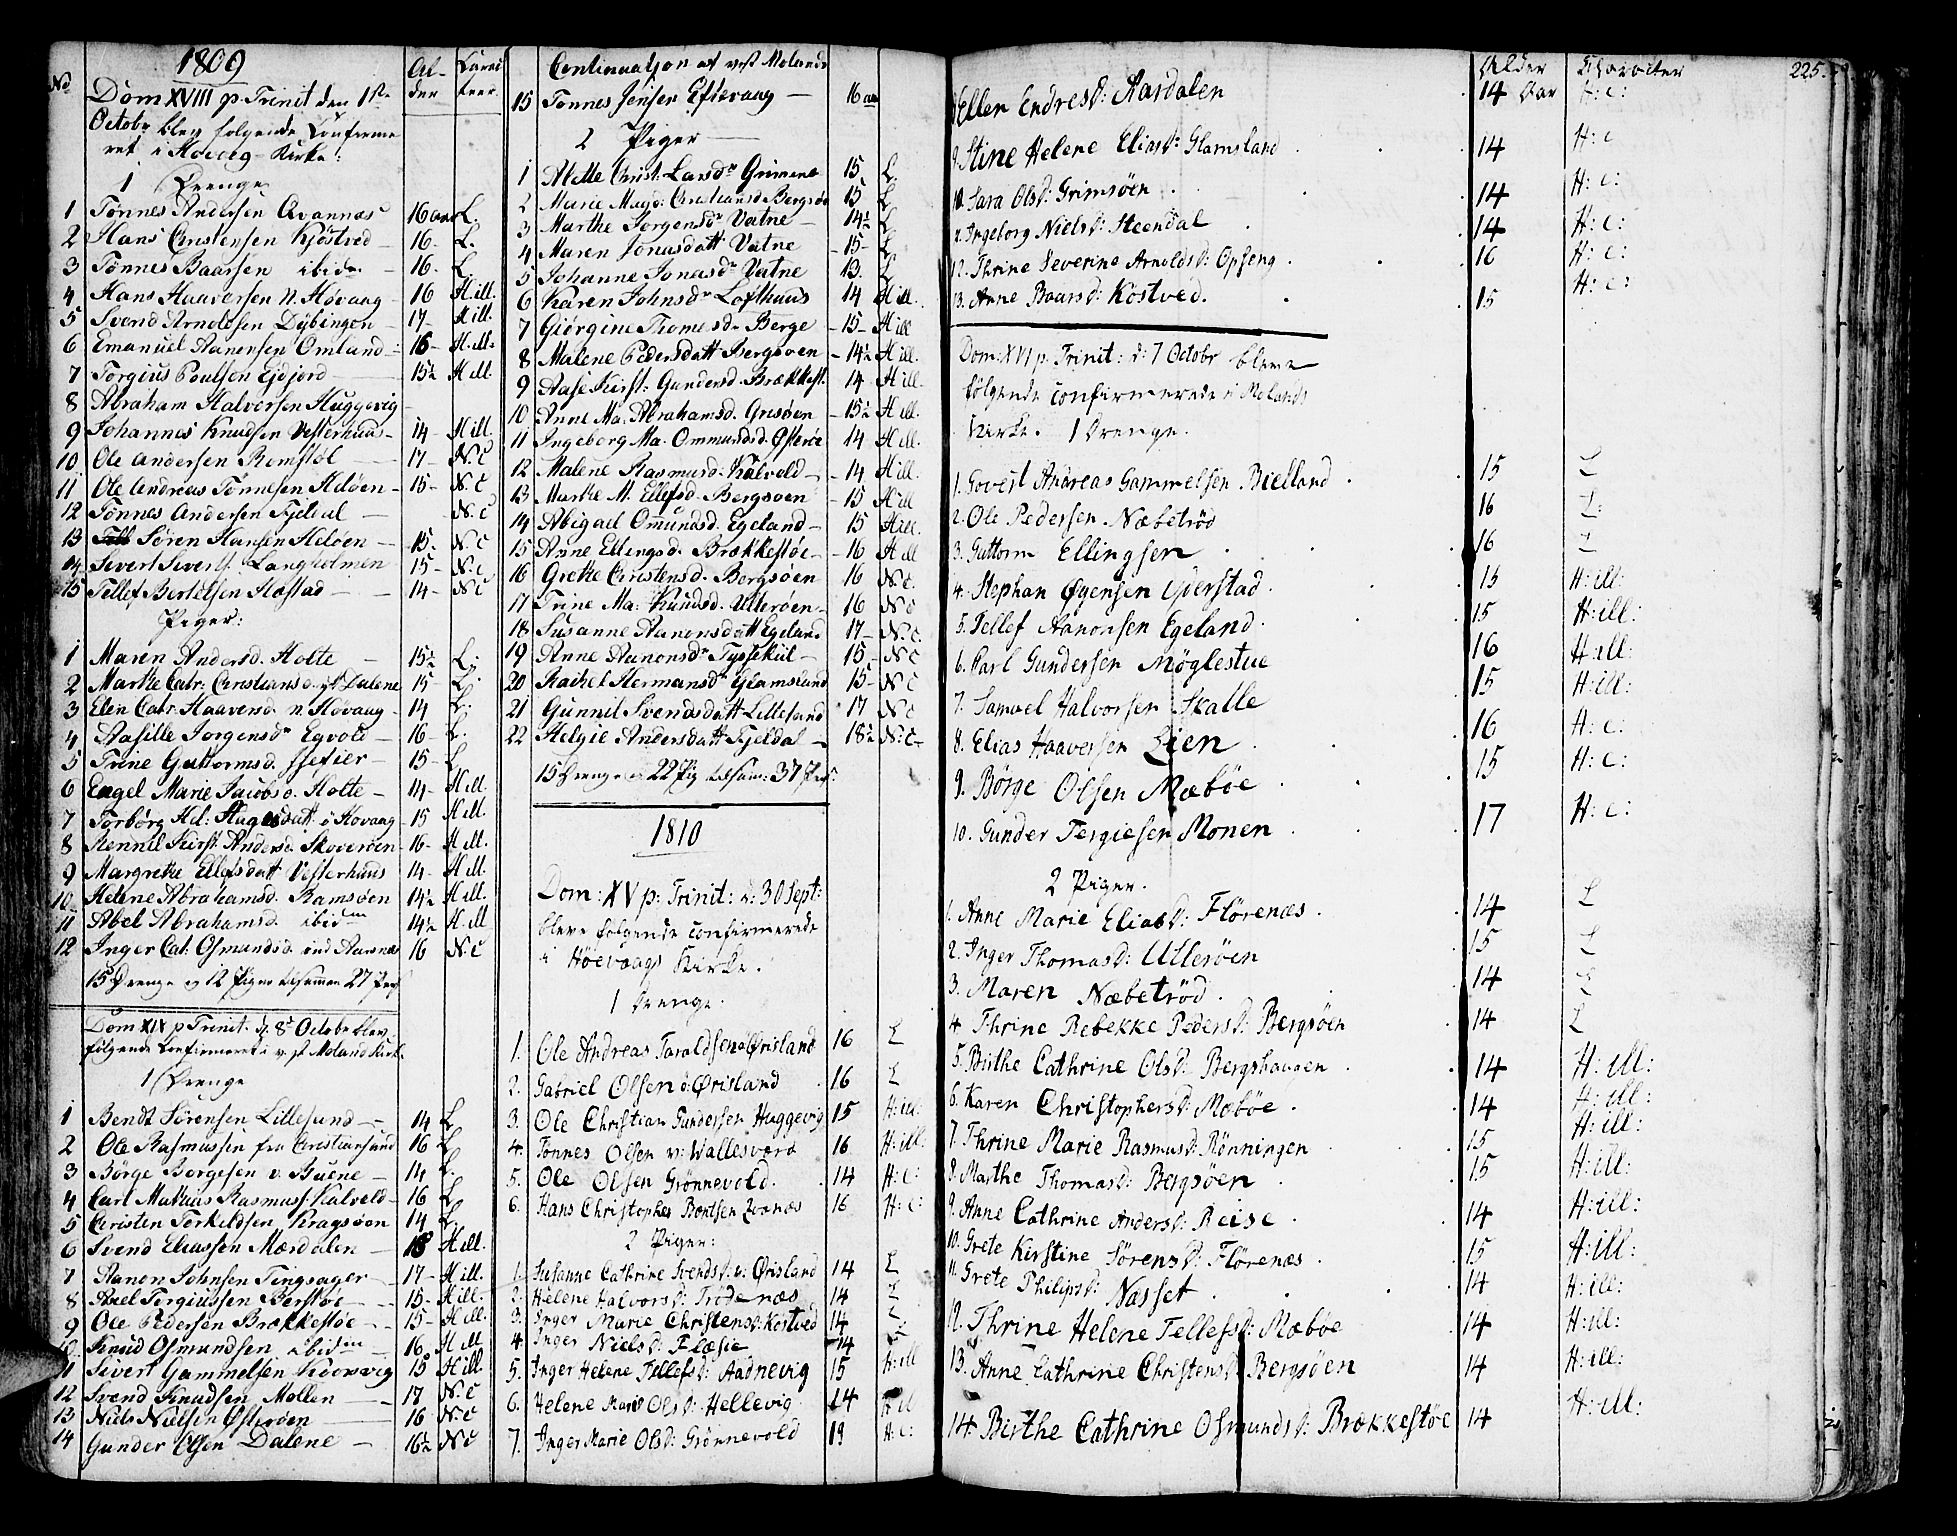 1809
No
Al-
der
Carac
teer.
Dom XVIII p. Trinit den 1ste
October blev følgende Confirme
ret i Høvog-Kirke:
1 Drenge
1 Tønnes Andersen Qvannæs 16 aar L.
2 Hans Christensen Kjøstved 16- L.
3 Tønnes Baarsen ibidm 16- L.
4 Hans Haaversen n. Høvaag 16 H ill.
5 Svend Arnoldsen Dybingen 17- H ill.
6 Emanuel Aanensen Omland 16- H ill.
7 Torgius Poulsen Eidjord 15½ H ill
8 Abraham Halvorsen Huggevig
9 Johannes Knudsen Vesterhuus 14- H ill.
10 Ole Andersen Romstøl 17- N. C
11 Ole Andreas Tønnesen Heløen 15- N. C
12 Tønnes Andersen Fjeldal N. C
13 Søren Hansen Heløen 15- N C
14 Sivert Sivertf. Langholmen 15- N. C
15 Tellef Bertelsen Hæstad 14- N C
Piger:
1 Maren Andersd. Holte 15½ L.
2 Marthe Catr. Christiansd. Dalene 15- L.
3 Elen Catr. Haaversd. n. Høvaag 14 L.
4 Aasille Jorgensdr Egvold 16- L.
5 Trine Guttormsd. 15- L
6 Engel Marie Jacobsd. Holte 14- H ill.
7 Torborg Hel: Hagesdatt ø Hovaag 15 H ill.
8 Rennil Kirst. Andersd. Skoverøen 16- H ill.
9 Margrethe Ellefsdatt Vesterhuus 14- H ill.
10 Helene Abrahamsd. Ramsøen 14½ H ill.
11 Abel Abrahamsd. ibidm 14½ H ill
12 Inger Cat. Osmundsd. 16 N. C
15 Drenge og 12 Piger tilsammen 27 Pers
Dom XIX p Trinit. d. 8de October blev
følgende Confirmeret i Moland Kirk.
1 Drenge
1 Bendt Sørensen Lillesund 14 L.
2 Ole Rasmussen fra Christiansand 16 L.
3 Børge Borgesen v. Buene 14 L.
4 Carl Mathias Rasmuss. Kalveld 16 L.
5 Christen Terkeldsen Kragsøen 14 L.
6 Svend Eliassen Mærdalen 18 H ill.
7 Aanon Johnsen Tingsager 17- H ill.
8 Axel Torgiussen Berstøe 15- H ill.
9 Ole Pedersen Brækkestøe 15- H ill.
10 Knud Osmundsen ibidm 16 H ill
11 Sivert Gammelsen Kiorvig 15 H ill
12 Svend Knudsen Mollen 17 N. C
13 Niels Nielsen Østerøen 16 N. C
14 Gunder Olsen Dalene 16½ N C
Continuation af vest Molands
15 Tønnes Jensen Eftevaag 16 aar
2 Piger
1 Alette Christ: Larsdr Grimene 15 L.
2 Marie Magd: Christiansd Bergsøe 15 L
3 Marthe Jorgensdr Vatne 14½ L
4 Maren Jonasdatt Vatne 15- L
5 Johanne Jonasdr Vatne 13. L
6 Karen Johnsdr Lofthuus 14 H ill.
7 Giorgine Thomesdr Berge 15- H ill
8 Malene Pedersdatt Bergsøen 14½ H ill.
9 Aase Kirst: Gundersd. Brækkest. 14 H ill.
10 Anne Ma. Abrahamsd. Gresøen 15½ H ill.
11 Ingeborg Ma. Ommundsd. Østerøe 14 H ill.
12 Malene Rasmusd. Kalveld 14 H ill.
13 Marthe M. Ellefsd. Bergsøen 15 H ill
14 Abigael Omundsd. Egeland 15 H ill.
15 Anne Ellingsd. Brækkestøe 16 H ill
16 Grethe Christensd. Bergsøen 16 N c.
17 Trine Ma: Knudsd. Ulterøen 16 N c
18 Susanne Aanonsdatt Egeland 17- N. c.
19 Anne Aanonsdr Tyssekiil 15- N c
20 Rachel Hermansdr Glamsland 15- N c
21 Gunnil Svendsdatt Lillesand 17 N c
22 Helgie Andersdatt Fjeldal 18½ N: c
15 Drenge og 22 Pig tilsam: 37 Pers:
1810
Dom: XV p: Trinit: d: 30 Sept:
bleve følgende confirmerede
i Høevaags Kirke.
1 Drenge.
1. Ole Andreas Taraldsen ø Ørisland 16 L
2. Gabriel Olsen ö: Ørisland 16 L
3. Ole Christian Gundersen Huggevig 15 H: ill:
4. Tønnes Olsen v: Wallesværd 16 H: ill:
5. Ole Olsen Grønnevold. 14 H: c:
6. Hans Christopher Berntsen Qvanæs 16 H: c:
2 Piger:
1. Susanne Cathrine Svendsd: v: Ørisland 14 L
2. Helene Halvorsd: Trødenæs 14 L
3. Inger Marie Christensd: Kostved 14 L
4. Inger Nielsd: Flæsie 14 L
5. Inger Helene Tellefsd: Aadnevig 15 H: ill
6. Helene Marie Olsd: Hellevig 14 H: ill
7. Inger Marie Olsd: Grønnevold 19 H: c:
Alder Charakter 225.
Ellen Endresd: Aardalen 14 Aar H: c:
9. Stine Helene Eliasd: Glamsland 14 H: c
10. Sara Olsd: Grimsøen 14 H: c:
11. Ingeborg Nielsd: Steendal 14 H: c:
12. Thrine Severine Arnoldsd: Opseng 16 H: c:
13. Anne Baarsd: Kostved. 15 H: c:
Dom: XVI p. Trinit: d: 7 Octobr bleve
følgende confirmerede i Molands
Kirke. 1 Drenge.
1. Govert Andreas Gammelsen Bielland 15 L
2. Ole Pedersen Næbetrød 16 L:
3. Guttorm Ellingsen 16 L
4. Stephan Øgensen Yderstad 15 H: ill:
5. Tellef Aanonsen Egeland 15 H: ill:
6. Carl Gundersen Møglestue 16 H: ill:
7. Samuel Halvorsen Skalle 15 H: ill:
8. Elias Haaversen Lien 16 H: c:
9. Børge Olsen Mæbøe 15 H: c:
10. Gunder Tergiesen Monen 17 H: c:
2 Piger.
1. Anne Marie Eliasd: Flørenæs 14 L
2. Inger Thomasd: Ullerøen 15 L
3. Maren Næbetrød 14 L
4. Thrine Rebekke Pedersd: Bergsøen 14 L
5. Birthe Cathrine Olsd: Bergshaugen 14 H: ill:
6. Karen Christophersd: Mæbøe 14 H: ill:
7. Thrine Marie Rasmusd: Rønningen 15 H: ill:
8. Marthe Thomasd: Bergsøen 15 H: ill:
9. Anne Cathrine Andersd: Reise 14 H: ill:
10. Grete Kirstine Sørensd: Flørenæs 15 H: ill:
11. Grete Philipsd: Nasset 14 H: ill:
12. Thrine Helene Tellefsd: Mæbøe 14 H: ill:
13. Anne Cathrine Christensd: Bergsøen 14 H: ill:
14. Berthe Cathrine Osmundsd: Brækkestøe 14 H: ill: